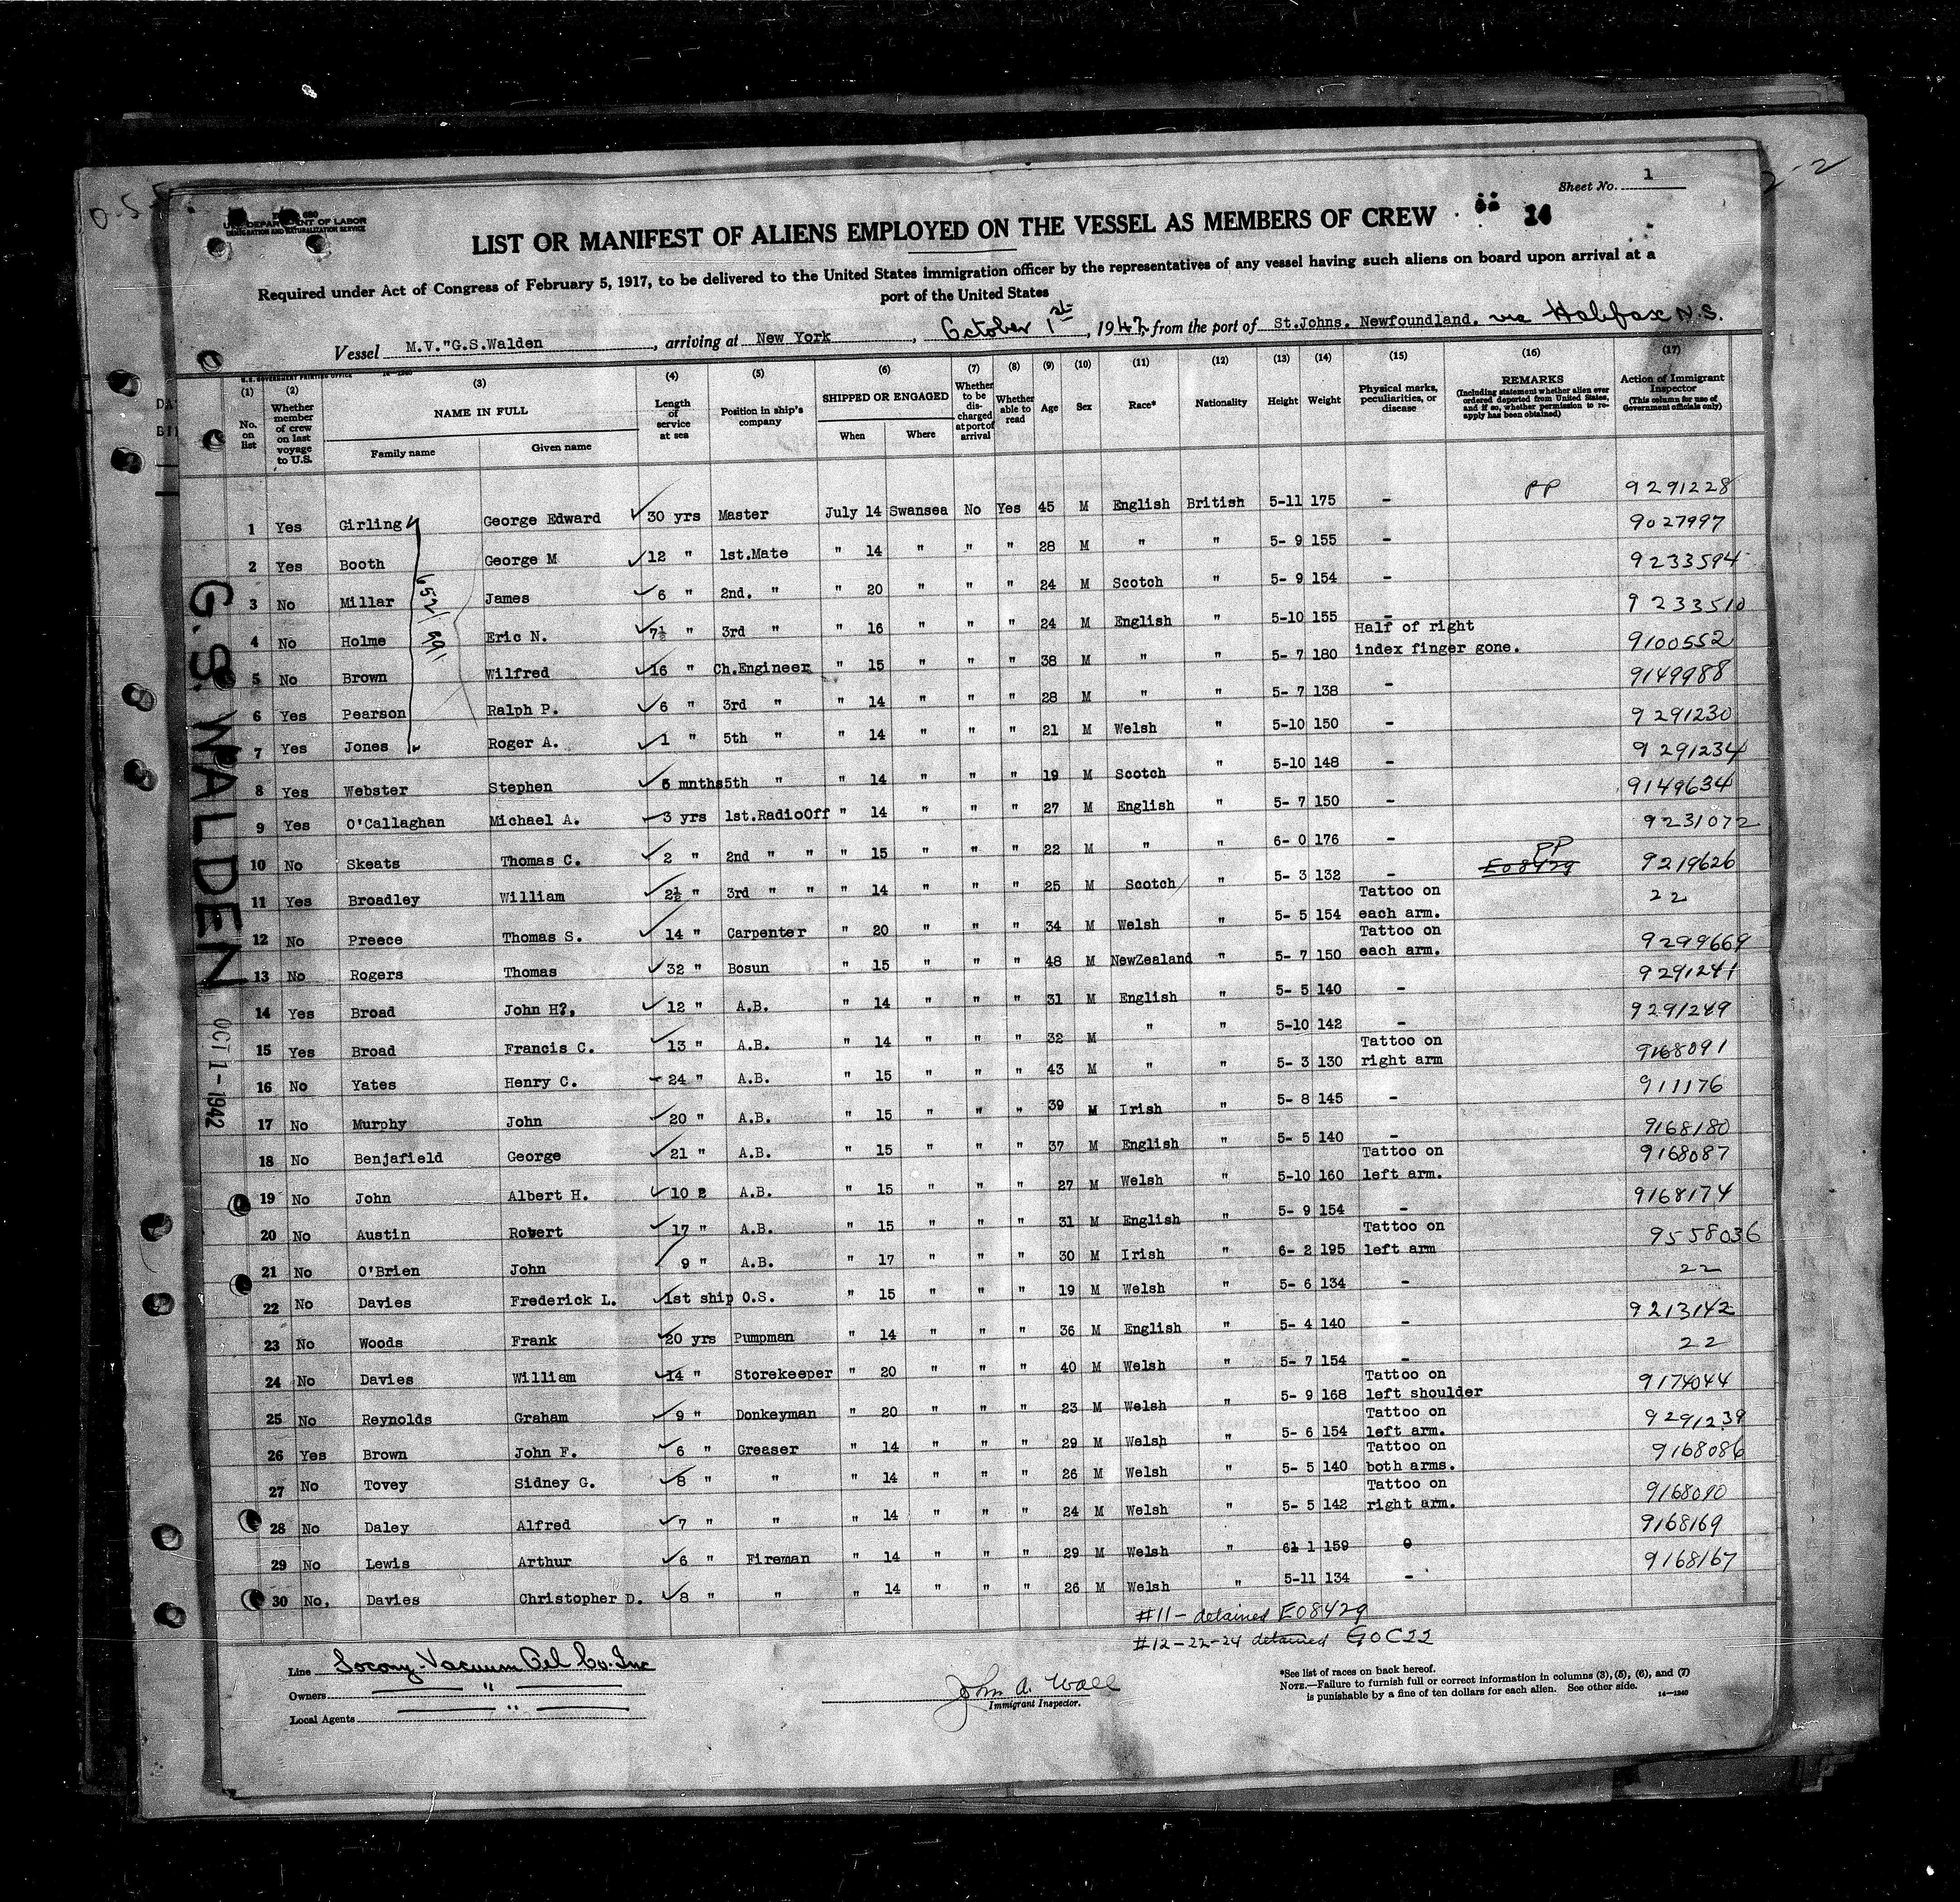 Sheet No. 1
U.S. DEPARTMENT OF LABOR
IMMIGRATION AND NATURALIZATION SERVICE
LIST OR MANIFEST OF ALIENS EMPLOYED ON THE VESSEL AS MEMBERS OF CREW 14
Required under Act of Congress of February 5, 1917, to be delivered to the United States immigration officer by the representatives of any vessel having such aliens on board upon arrival at a
port of the United States
Vessel M.V."G.S.Walden, arriving at New York, October 1st, 1942, from the port of St.Johns. Newfoundland. via Halifax N.S.
U.S. GOVERNMENT PRINTING OFFICE
(1) No. on list
(2) Whether member of crew on last voyage to U.S.
(3) NAME IN FULL Family name Given name
(4) Length of service at sea
(5) Position in ship's company
(6) SHIPPED OR ENGAGED When Where
(7) Whether to be discharged at port of arrival
(8) Whether able to read
(9) Age
(10) Sex
(11) Race*
(12) Nationality
(13) Height
(14) Weight
(15) Physical marks, peculiarities, or disease
(16) REMARKS (Including statement whether alien ever ordered deported from United States, and if so, whether permission to reapply has been obtained)
(17) Action of Immigrant Inspector (This column for use of Government officials only)
1 Yes Girling George Edward 30 yrs Master July 14 Swansea No Yes 45 M English British 5-11 175 - PP 9291228
2 Yes Booth George M 12 " 1st.Mate " 14 " " " 28 M " " 5- 9 155 - 9027997
3 No Millar James 6 " 2nd. " " 20 " " " 24 M Scotch " 5- 9 154 - 9233594
4 No Holme Eric N. 7½ " 3rd " " 16 " " " 24 M English " 5-10 155 - 9233510
5 No Brown Wilfred 16 " Ch.Engineer " 15 " " " 38 M " " 5- 7 180 Half of right index finger gone. 9100552
6 Yes Pearson Ralph P. 6 " 3rd " " 14 " " " 28 M " " 5- 7 138 - 9149988
7 Yes Jones Roger A. 1 " 5th " " 14 " " " 21 M Welsh " 5-10 150 - 9291230
8 Yes Webster Stephen 5 mnths 5th " " 14 " " " 19 M Scotch " 5-10 148 - 9291234
9 Yes O'Callaghan Michael A. 3 yrs 1st.RadioOff " 14 " " " 27 M English " 5- 7 150 - 9149634
10 No Skeats Thomas C. 2 " 2nd " " " 15 " " " 22 M " " 6- 0 176 - 9231072
11 Yes Broadley William 2½ " 3rd " " " 14 " " " 25 M Scotch " 5- 3 132 - PP E08429 9219626
12 No Preece Thomas S. 14 " Carpenter " 20 " " " 34 M Welsh " 5- 5 154 Tattoo on each arm. 22
13 No Rogers Thomas 32 " Bosun " 15 " " " 48 M NewZealand " 5- 7 150 Tattoo on each arm. 9299669
14 Yes Broad John H?, 12 " A.B. " 14 " " " 31 M English " 5- 5 140 - 9291241
15 Yes Broad Francis C. 13 " A.B. " 14 " " " 32 M " " 5-10 142 - 9291249
16 No Yates Henry C. 24 " A.B. " 15 " " " 43 M " " 5- 3 130 Tattoo on right arm 9168091
17 No Murphy John 20 " A.B. " 15 " " " 39 M Irish " 5- 8 145 - 911176
18 No Benjafield George 21 " A.B. " 15 " " " 37 M English " 5- 5 140 - 9168180
19 No John Albert H. 10 2 A.B. " 15 " " " 27 M Welsh " 5-10 160 Tattoo on left arm. 9168087
20 No Austin Robert 17 " A.B. " 15 " " " 31 M English " 5- 9 154 - 9168174
21 No O'Brien John 9 " A.B. " 17 " " " 30 M Irish " 6- 2 195 Tattoo on left arm 9558036
22 No Davies Frederick L. 1st ship O.S. " 15 " " " 19 M Welsh " 5- 6 134 - 22
23 No Woods Frank 20 yrs Pumpman " 14 " " " 36 M English " 5- 4 140 - 9213142
24 No Davies William 14 " Storekeeper " 20 " " " 40 M Welsh " 5- 7 154 - 22
25 No Reynolds Graham 9 " Donkeyman " 20 " " " 23 M Welsh " 5- 9 168 Tattoo on left shoulder 9174044
26 Yes Brown John F. 6 " Greaser " 14 " " " 29 M Welsh " 5- 6 154 Tattoo on left arm. 9291239
27 No Tovey Sidney G. 8 " " " 14 " " " 26 M Welsh " 5- 5 140 Tattoo on both arms. 9168086
28 No Daley Alfred 7 " " " 14 " " " 24 M Welsh " 5- 5 142 Tattoo on right arm. 9168090
29 No Lewis Arthur 6 " Fireman " 14 " " " 29 M Welsh " 6 1 159 9168169
30 No. Davies Christopher D. 8 " " " 14 " " " 26 M Welsh " 5-11 134 - 9168167
G.S. WALDEN
OCT 1-1942
#11 - detained E08429
#12-22-24 detained GOC22
Line Socony-Vacuum Oil Co. Inc
Owners "
Local Agents "
John A. Wall
Immigrant Inspector.
*See list of races on back hereof.
NOTE.—Failure to furnish full or correct information in columns (3), (5), (6), and (7)
is punishable by a fine of ten dollars for each alien. See other side. 14—1240